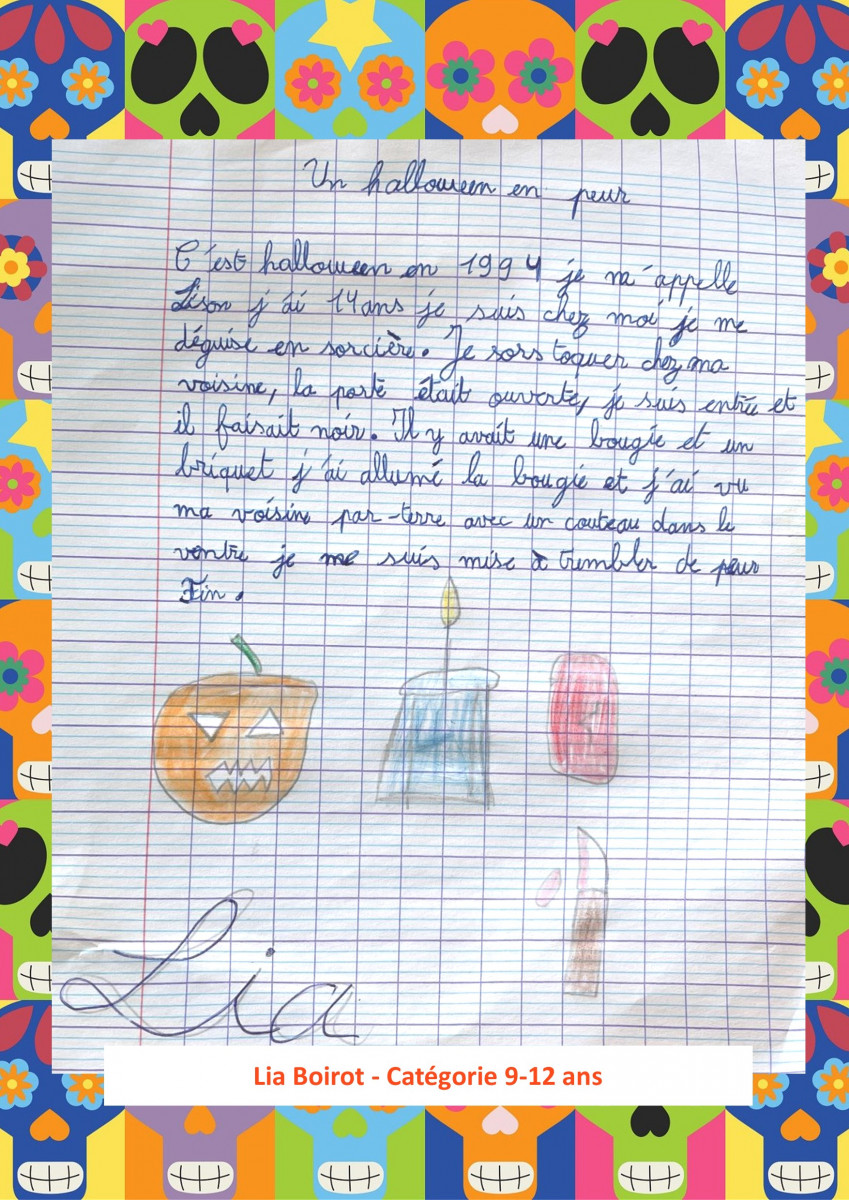 Un halloween en peur
C'est halloween en 1994 je m'appelle
Lison j'ai 14ans je suis chez moi je me
déguise en sorcière. Je sors toquer chez ma
voisine, la porte était ouverte, je suis entrée et
il faisait noir. Il y avait une bougie et un
briquet j'ai allumé la bougie et j'ai vu
ma voisine par-terre avec un couteau dans le
ventre je me suis mise à trembler de peur
Fin.
Lia
Lia Boirot - Catégorie 9-12 ans